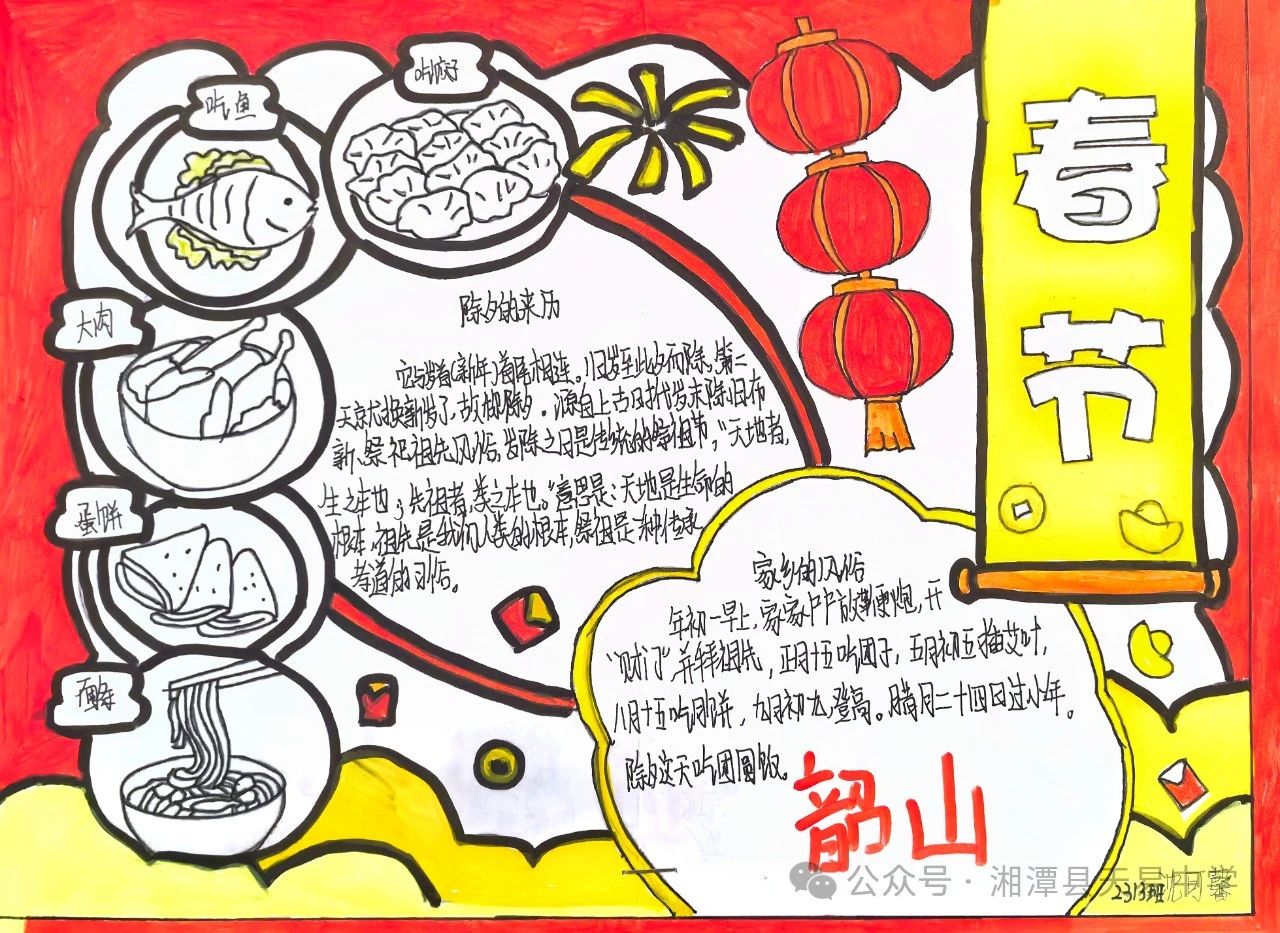 春节
吃鱼
吃饺子
大肉
蛋饼
面条
除夕的来历
它与岁首(新年)首尾相连。旧岁至此夕而除,第二
天就换新岁了,故曰除夕。源自上古时代岁末除旧布
新、祭祀祖先风俗,岁除之日是传统的祭祖节,“天地者,
生之本也;先祖者,类之本也。”意思是:天地是生命的
根本,祖先是我们人类的根本,祭祖是一种传承
孝道的习俗。
家乡的风俗
年初一早上,家家户户放鞭炮,开
“财门”并拜祖先,正月十五吃团子,五月初五插艾叶,
八月十五吃月饼,九月初九登高。腊月二十四日过小年。
除夕这天吃团圆饭。
韶山
公众号·湘潭县天易中学
2313班